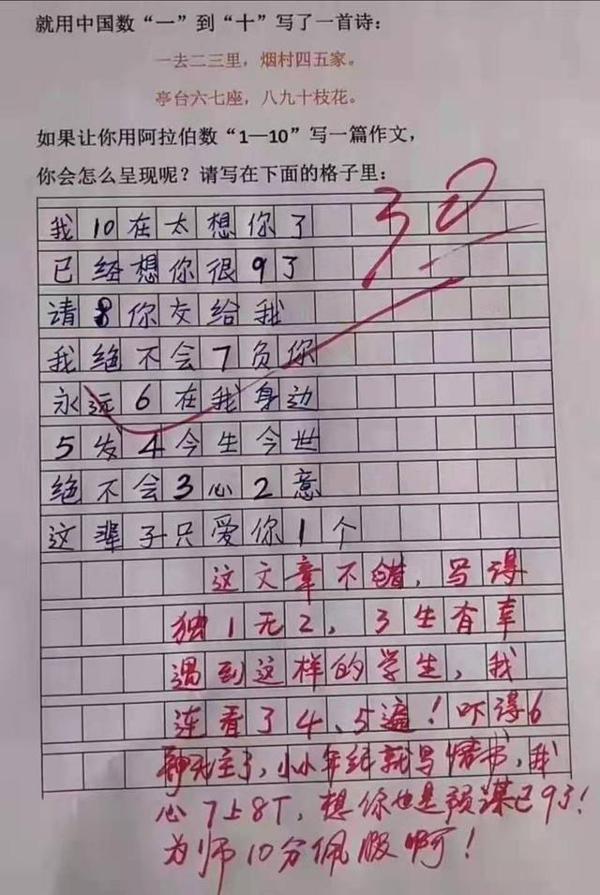 就用中国数“一”到“十”写了一首诗：
一去二三里，烟村四五家。
亭台六七座，八九十枝花。
如果让你用阿拉伯数“1—10”写一篇作文，
你会怎么呈现呢？请写在下面的格子里：
30
我10在太想你了
已经想你很9了
请8你交给我
我绝不会7负你
永远6在我身边
5发4今生今世
绝不会3心2意
这辈子只爱你1个
这文章不错，写得
独1无2，3生有幸
遇到这样的学生，我
连看了4、5遍！吓得6
神无主了，小小年纪就写情书，我
心7上8下，想你也是预谋已9了！
为师10分佩服啊！